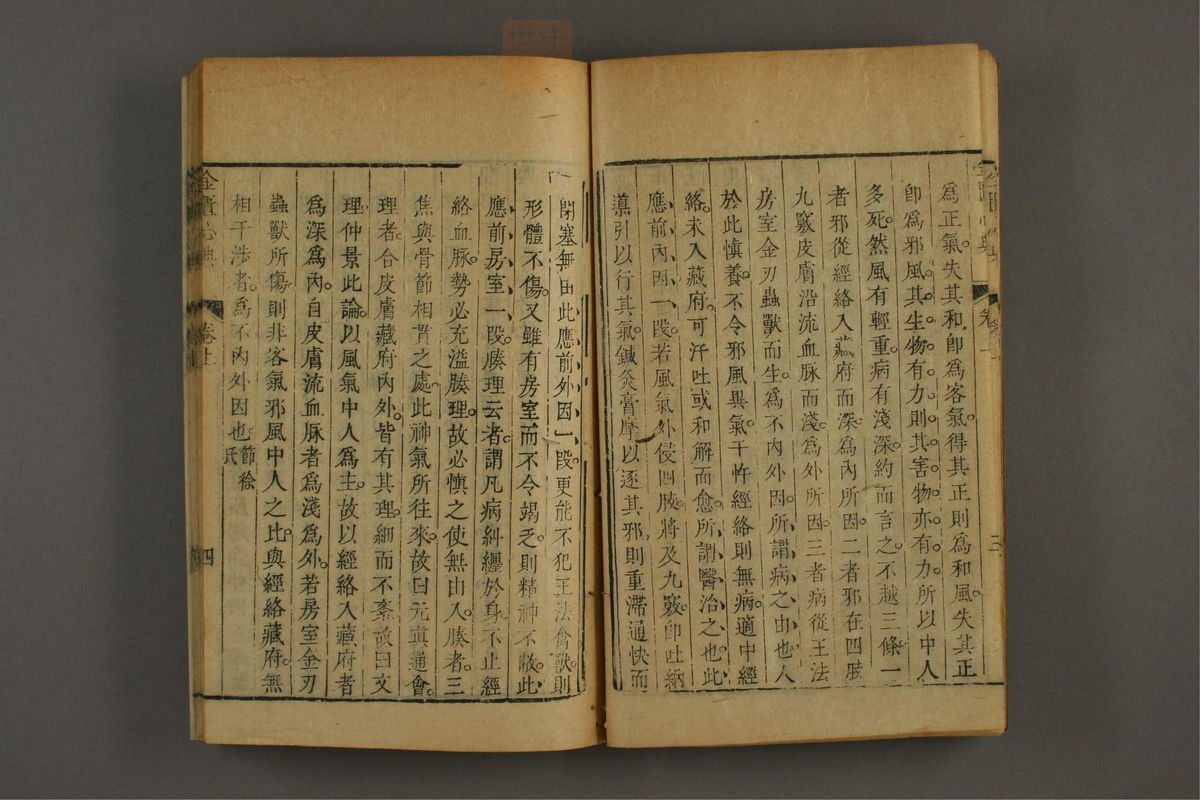 爲正氣。失其和卽爲客氣。得其正則爲和風。失其正
卽爲邪風。其生物有力。則其害物亦有力。所以中人
多死。然風有輕重。病有淺深。約而言之。不越三條。一
者邪從經絡入藏府而深。爲內所因。二者邪在四肢
九竅皮膚沿流血脉而淺。爲外所因。三者病從王法
房室金刃蟲獸而生。爲不內外因。所謂病之由也。人
於此愼養。不令邪風異氣干忤經絡則無病。適中經
絡。未入藏府。可汗吐或和解而愈。所謂醫治之也。此
應前內因一段。若風氣外侵四肢將及九竅。卽吐納
導引以行其氣。鍼灸膏摩以逐其邪。則重滯通快。而
閉塞無由。此應前外因一段。更能不犯王法禽獸。則
形體不傷。又雖有房室。而不令竭乏。則精神不敝。此
應前房室一段。腠理云者。謂凡病糾纏於身。不止經
絡血脉。勢必充溢腠理。故必愼之使無由入。腠者。三
焦與骨節相貫之處。此神氣所往來。故曰元眞通會。
理者。合皮膚藏府內外。皆有其理。細而不紊。故曰文
理。仲景此論。以風氣中人爲主。故以經絡入藏府者
爲深爲內。自皮膚流血脉者爲淺爲外。若房室金刃
蟲獸所傷。則非客氣邪風中人之比。與經絡藏府。無
相干涉者。爲不內外因也。節徐氏
金匱心典
卷上
三
金匱心典
卷上
四